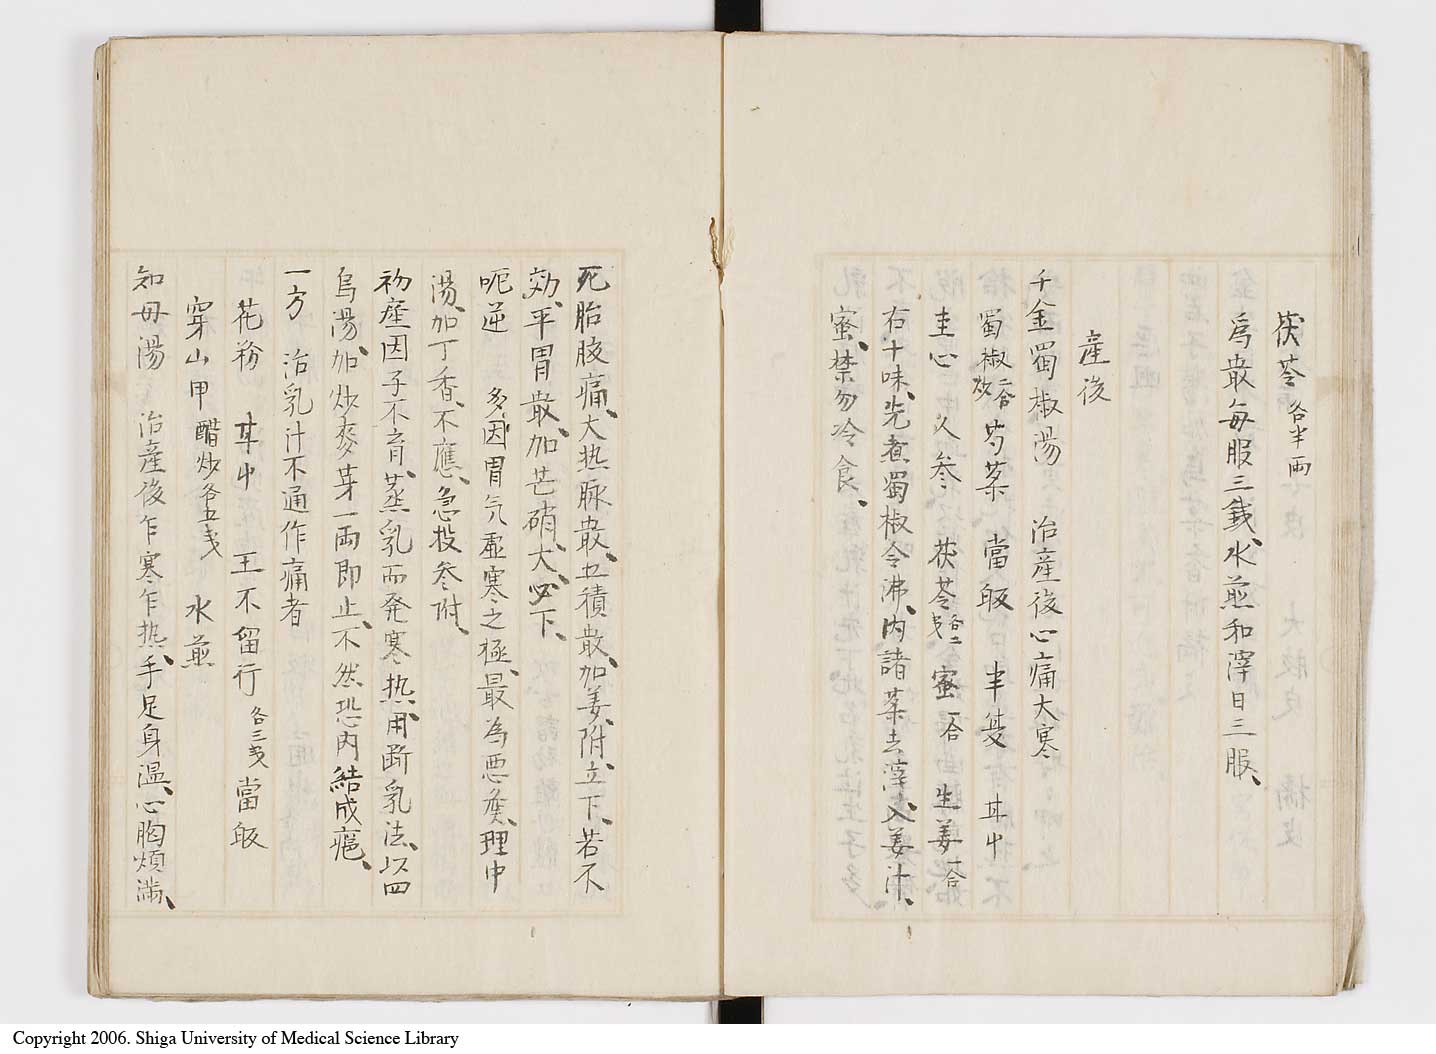 茯苓各半両　大腹皮　橘皮
為散毎服三銭、水煎和滓日三服、
産後
千金蜀椒湯　治産後心痛大寒
蜀椒二合炒　芍薬　當皈　半夏　甘屮
圭心　人参　茯苓各二戔　蜜一合　生姜一合
右十味、先煮蜀椒令沸、内諸薬去滓、入姜汁、
蜜、禁勿冷食、
死胎腹痛、大热脈散、五積散、加姜、附、立下、若不
効、平胃散、加芒硝、大、必下、
呃逆　多因胃気虚寒之極、最為悪候、理中
湯、加丁香、不應、急投参附、
初産因子不育、蒸乳而発寒热、用断乳法、以四
烏湯、加炒麥芽一両即止、不然恐内結成癰、
一方　治乳汁不通作痛者
花粉　甘屮　王不留行各三戔　當皈
穿山甲醋炒各五戔　水煎
知母湯　治産後乍寒乍热、手足身温、心胸煩満、
Copyright 2006. Shiga University of Medical Science Library